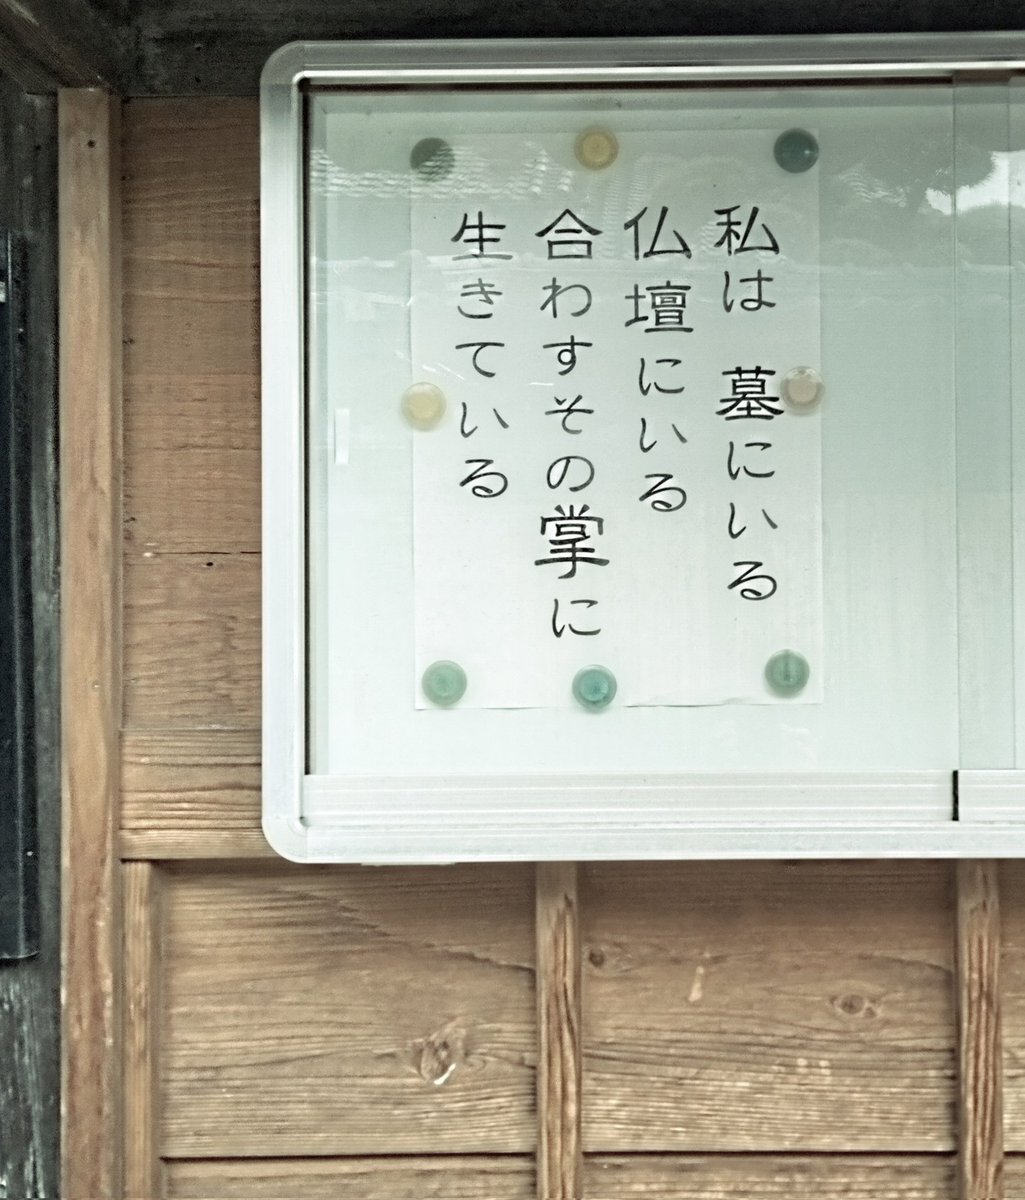 私は　墓にいる
仏壇にいる
合わすその掌に
生きている